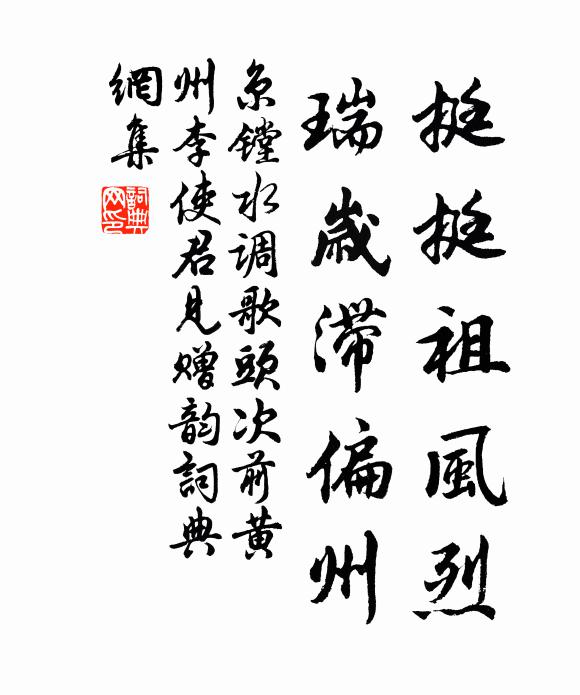 挺挺祖風烈
瑞歲滯偏州
京鏜水調歌頭次前黃
州李使君見贈韵詞典
網集
詞典网印